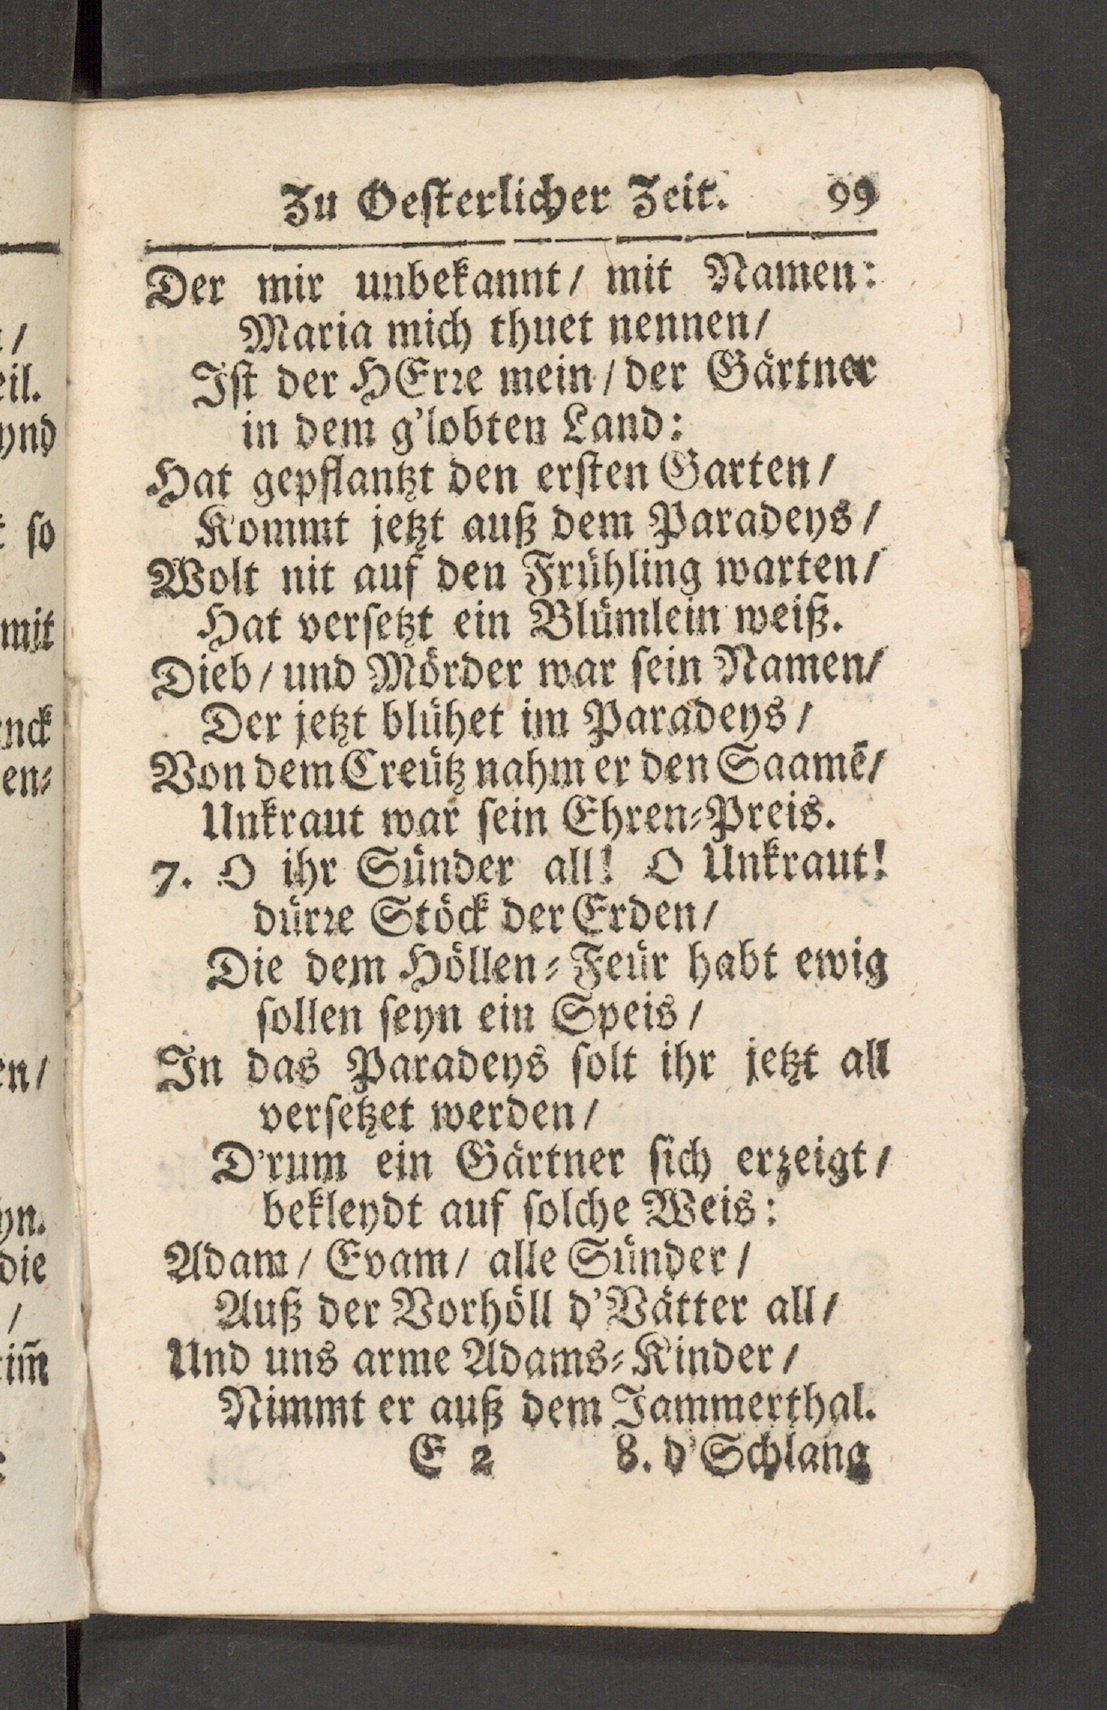 Zu Oesterlicher Zeit. 99
Der mir unbekannt / mit Namen:
Maria mich thuet nennen /
Ist der HErre mein / der Gärtner
in dem g'lobten Land:
Hat gepflantzt den ersten Garten /
Kommt jetzt auß dem Paradeys /
Wolt nit auf den Frühling warten /
Hat versetzt ein Blümlein weiß.
Dieb / und Mörder war sein Namen /
Der jetzt blühet im Paradeys /
Von dem Creütz nahm er den Saamē /
Unkraut war sein Ehren-Preis.
7. O ihr Sünder all! O Unkraut!
dürre Stöck der Erden /
Die dem Höllen-Feür habt ewig
sollen seyn ein Speis /
In das Paradeys solt ihr jetzt all
versetzet werden /
D'rum ein Gärtner sich erzeigt /
bekleydt auf solche Weis:
Adam / Evam / alle Sünder /
Auß der Vorhöll d'Vätter all /
Und uns arme Adams-Kinder /
Nimmt er auß dem Jammerthal.
E 2 8. d'Schlang